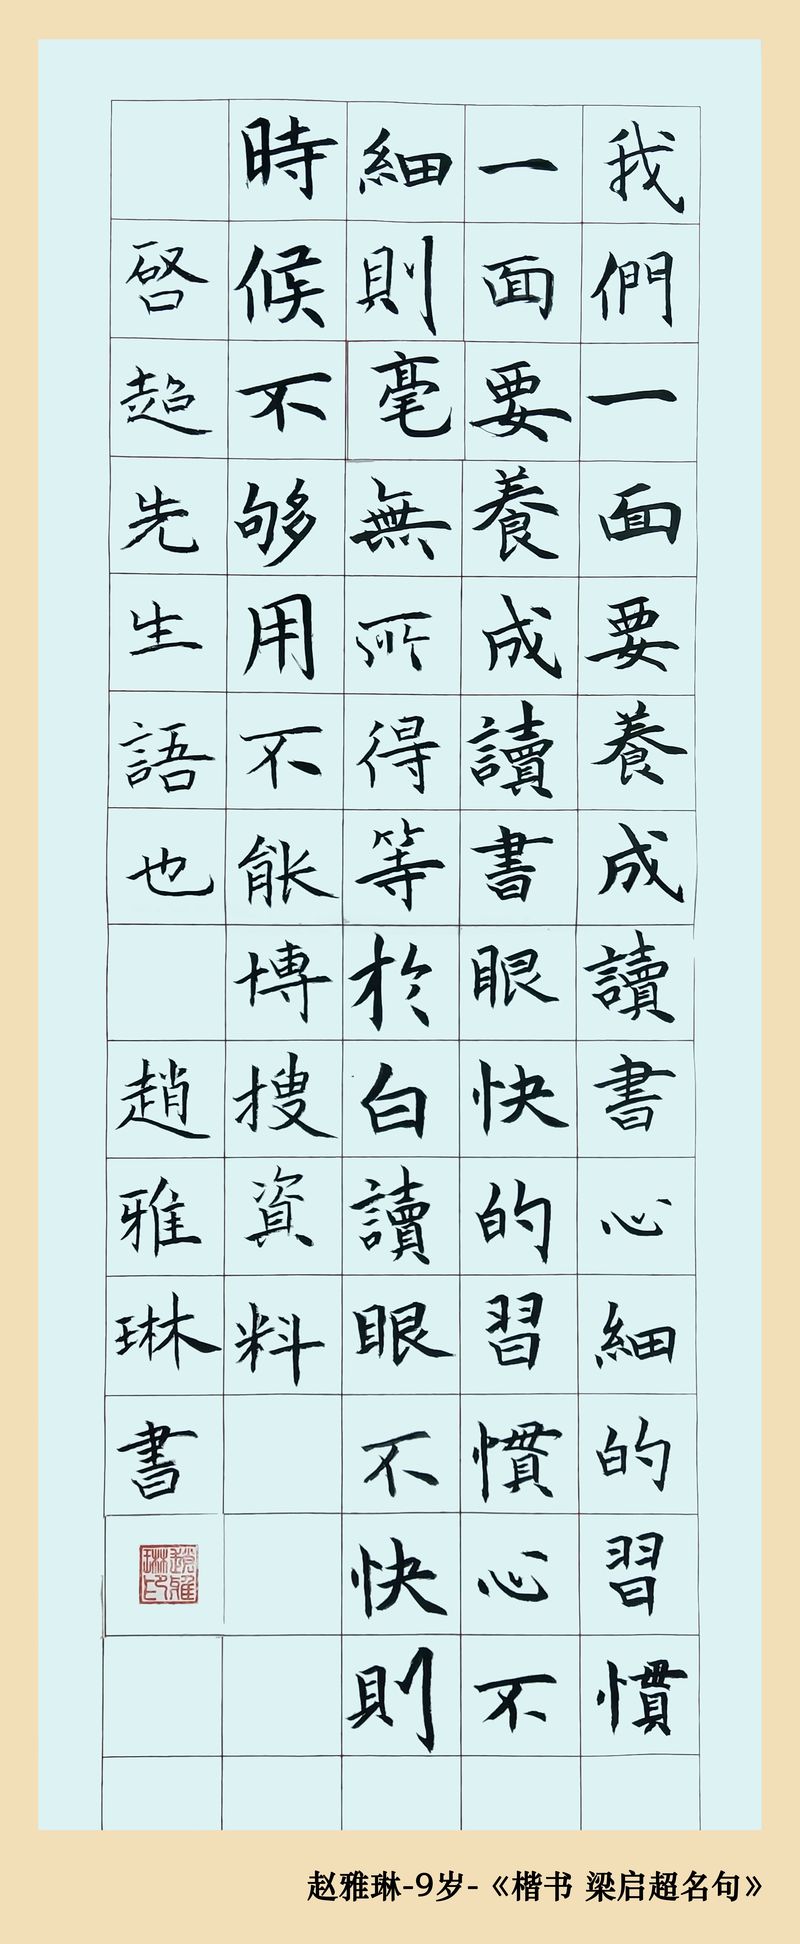 我們一面要養成讀書心細的習慣
一面要養成讀書眼快的習慣心不
細則毫無所得等於白讀眼不快則
時候不够用不能博搜資料
啓超先生語也 趙雅琳書
趙雅琳印
赵雅琳-9岁-《楷书 梁启超名句》